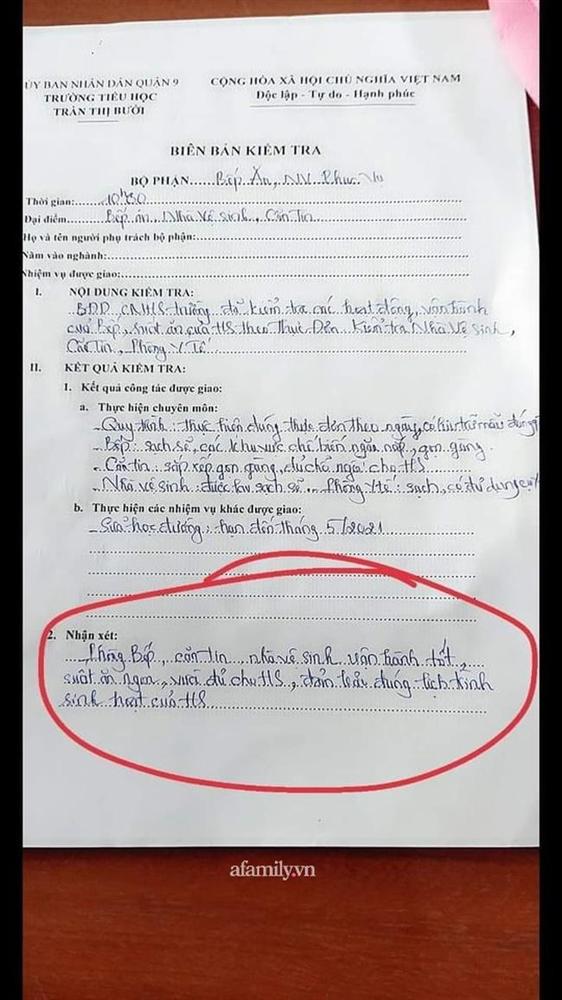 ỦY BAN NHÂN DÂN QUẬN 9
TRƯỜNG TIỂU HỌC
TRẦN THỊ BƯỞI
CỘNG HÒA XÃ HỘI CHỦ NGHĨA VIỆT NAM
Độc lập - Tự do - Hạnh phúc
BIÊN BẢN KIỂM TRA
BỘ PHẬN.....Bếp Ăn, NV Phục Vụ
Thời gian:.....10h30
Đại điểm.....Bếp ăn, Nhà Vệ sinh, Căn Tin
Họ và tên người phụ trách bộ phận:
Năm vào nghành:
Nhiệm vụ được giao:
I. NỘI DUNG KIỂM TRA:
BĐD CMHS trường đã kiểm tra các hoạt động, vận hành
của Bếp, suất ăn của HS theo Thực Đơn Kiểm tra Nhà Vệ sinh,
Căn Tin, Phòng Y Tế
II. KẾT QUẢ KIỂM TRA:
1. Kết quả công tác được giao:
a. Thực hiện chuyên môn:
- Quy trình: Thực hiện đúng thực đơn theo ngày, có lưu trữ mẫu đúng
- Bếp: sạch sẽ, các khu vực chế biến ngăn nắp, gọn gàng.
- Căn tin: sắp xếp gọn gàng, đủ chỗ ngồi cho HS
- Nhà vệ sinh: được lau sạch sẽ. - Phòng Y tế: sạch, có đủ dụng cụ
b. Thực hiện các nhiệm vụ khác được giao:
- Sữa học đường: hạn đến tháng 5/2021
2. Nhận xét:
Phòng Bếp, căn tin, nhà vệ sinh vận hành tốt,
suất ăn ngon, vừa đủ cho HS, đảm bảo đúng lịch trình
sinh hoạt của HS
afamily.vn